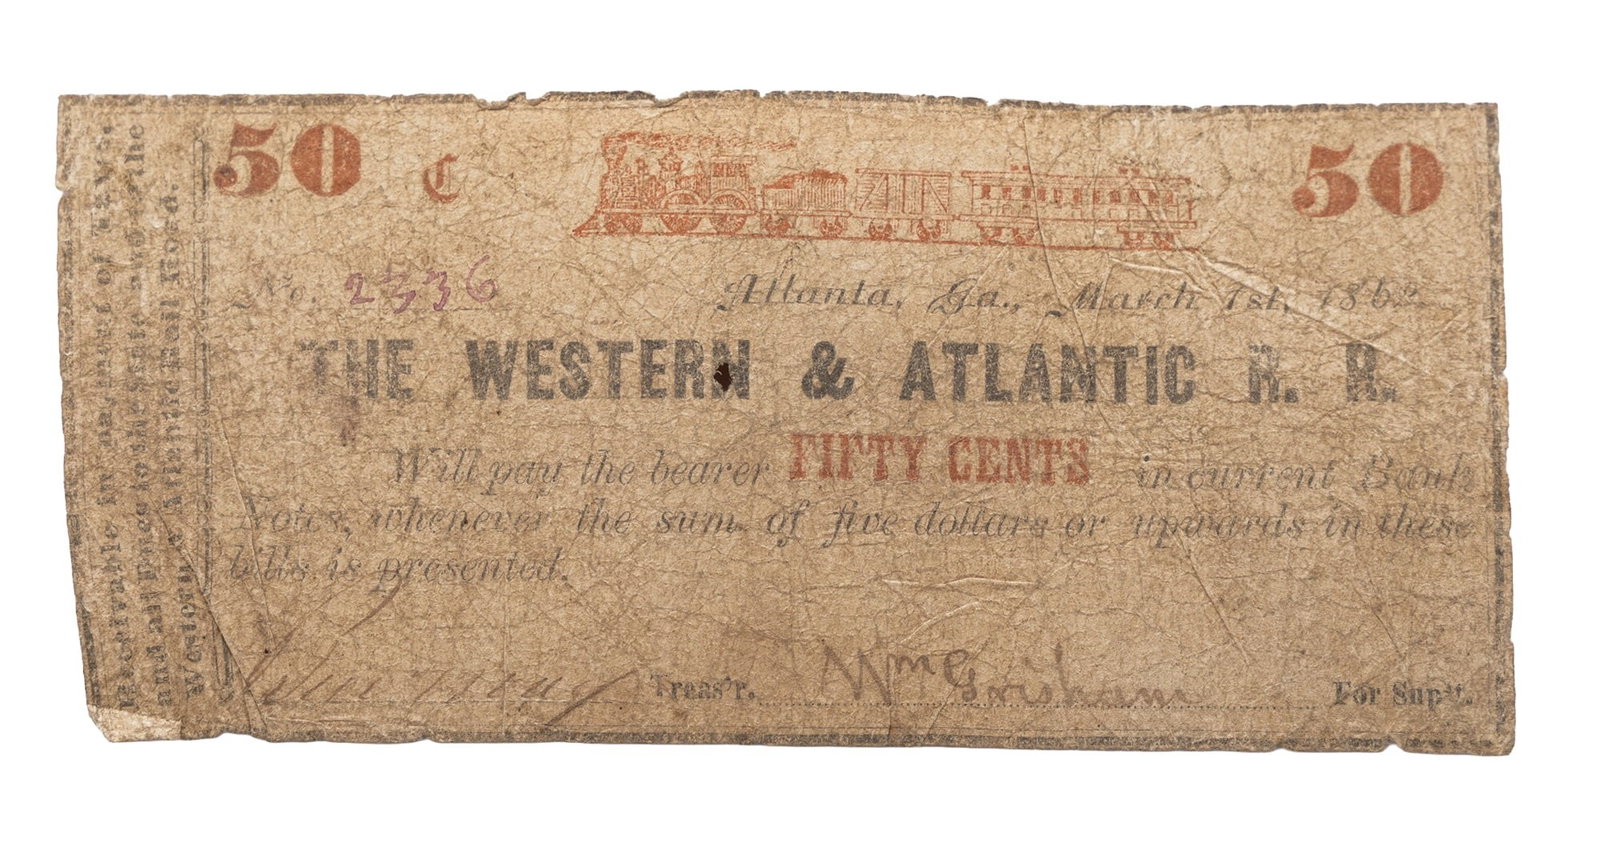 50 ¢ 50
No. 2336 Atlanta, Ga., March 1st, 186
THE WESTERN & ATLANTIC R. R.
Will pay the bearer FIFTY CENTS in current Bank
Notes, whenever the sum of five dollars or upwards in these
bills is presented.
Treas'r. Wm Grisham For Sup't.
Receivable in payment of
and all Dues to the State and the
Western & Atlantic Rail Road.